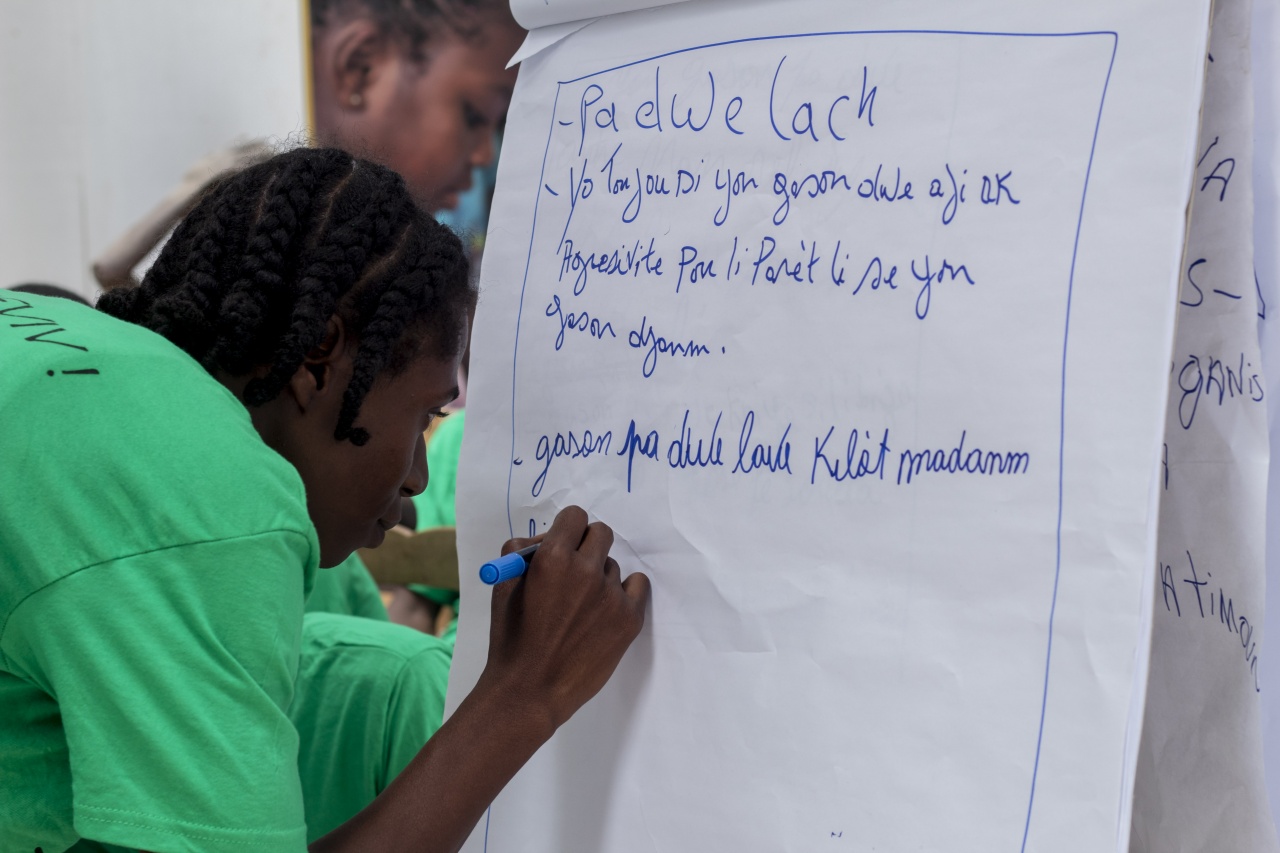 - Pa dwe lach
- Yo toujou Di yon gason dwe aji ak
Agresivite Pou li Parèt li se yon
gason djanm.
- gason pa dwe lave Kilòt madanm
li
'A
S-
ganis
A
A timoun